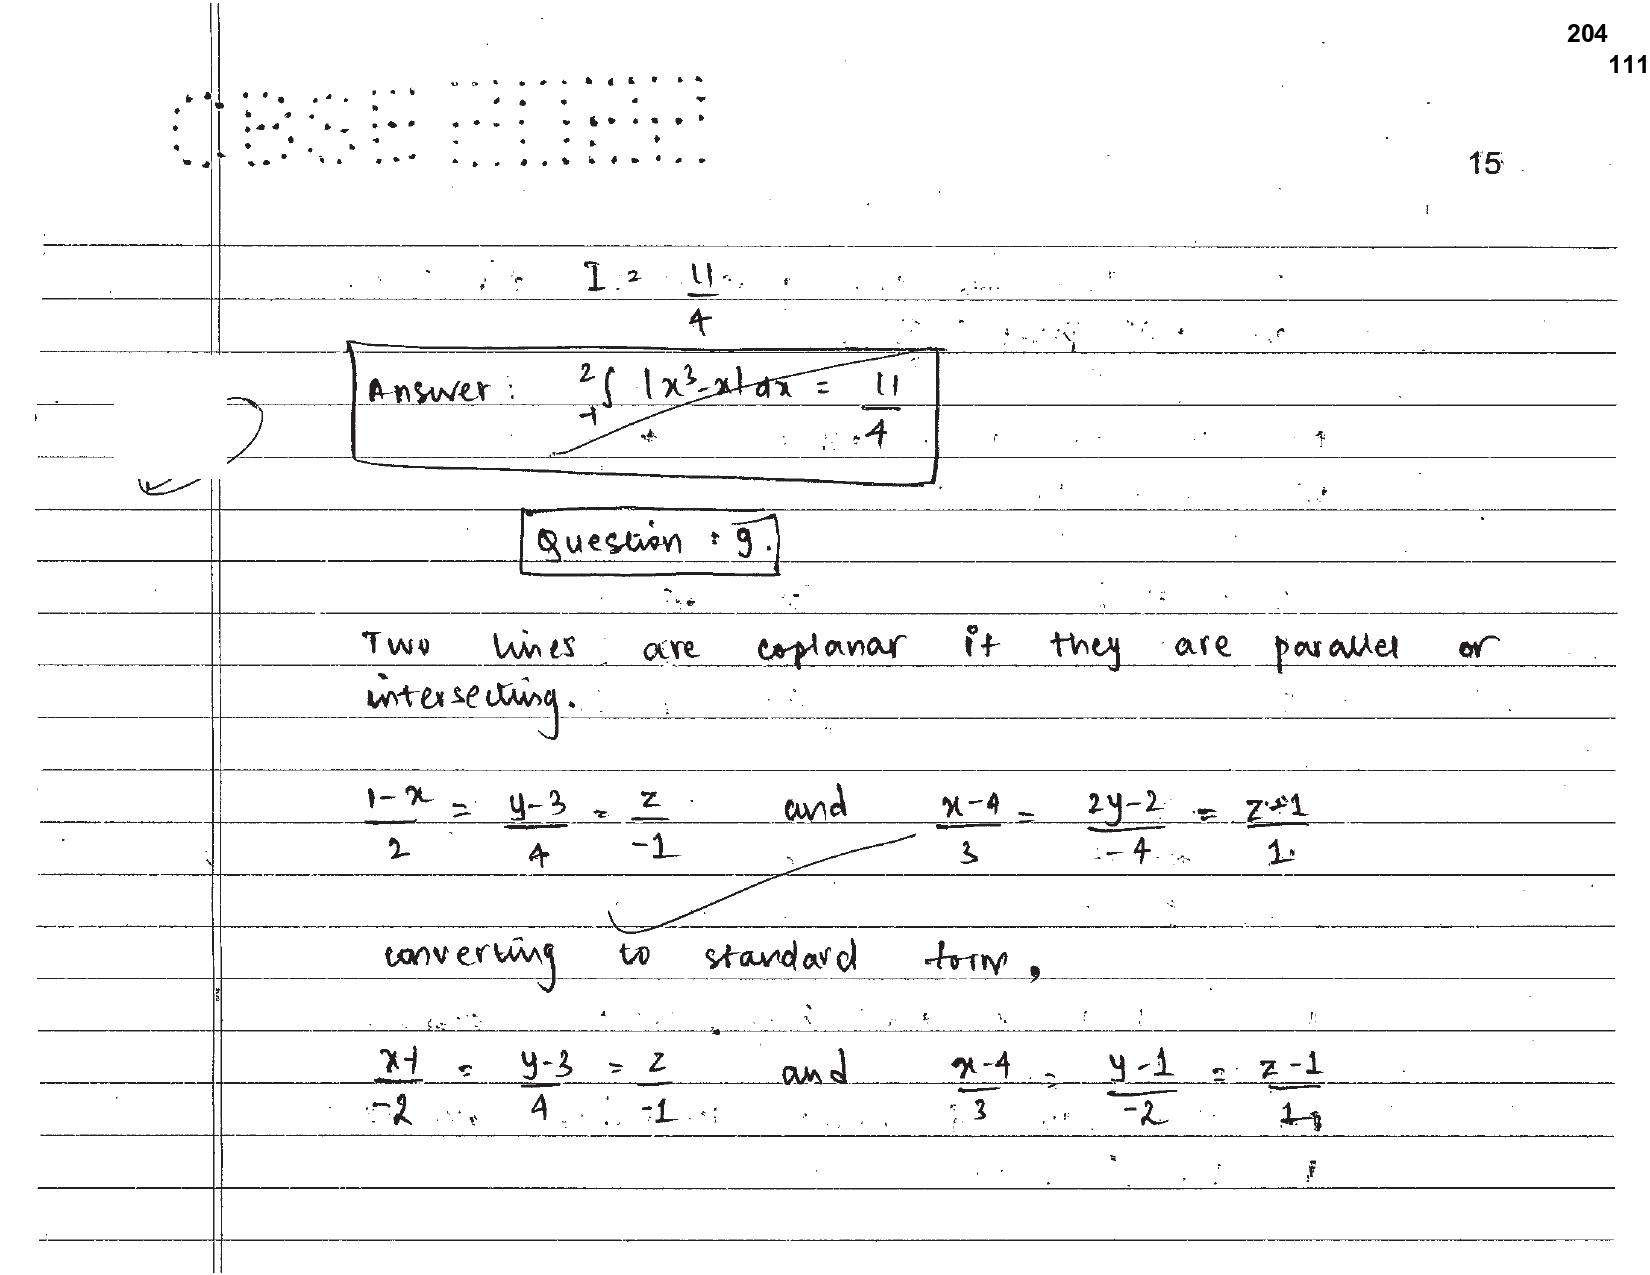 204
111
CBSE
15
I = 11/4
Answer : 2∫-1 |x³-x| dx = 11/4
Question : 9.
Two lines are coplanar if they are parallel or
intersecting.
1-x/2 = y-3/4 = z/-1 and x-4/3 = 2y-2/-4 = z-1/1
converting to standard form,
x-1/-2 = y-3/4 = z/-1 and x-4/3 = y-1/-2 = z-1/1